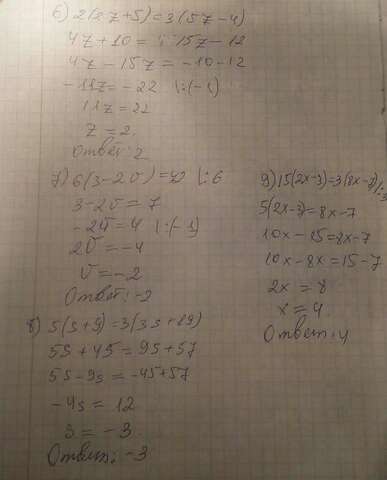 6) 2(2z+5)=3(5z-4)
4z+10=15z-12
4z-15z=-10-12
-11z=-22 |:(-1)
11z=22
z=2.
Ответ: 2
7) 6(3-2v)=42 |:6
3-2v=7
-2v=4 |:(-1)
2v=-4
v=-2
Ответ: -2
8) 5(s+9)=3(3s+19)
5s+45=9s+57
5s-9s=-45+57
-4s=12
s=-3.
Ответ: -3
9) 15(2x-3)=3(8x-7) |:3
5(2x-3)=8x-7
10x-15=8x-7
10x-8x=15-7
2x=8
x=4
Ответ: 4